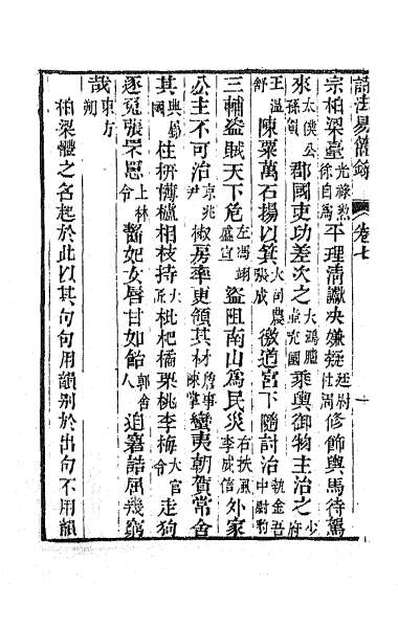 詩法易簡錄 卷七 十
宗柏梁臺光祿勲徐自爲平理清讞決嫌疑廷尉杜周修飾輿馬待駕
來太僕公孫賀郡國吏功差次之大鴻臚壺充國乘輿御物主治之少府
王溫舒陳粟萬石揚以箕大司農張成徼道宮下隨討治執金吾中尉豹
三輔盜賊天下危左馮翊盛宣盜阻南山爲民災右扶風李成信外家
公主不可治京兆尹椒房率更領其材詹事陳掌蠻夷朝賀常舍
其典屬國柱枅欂櫨相枝持大匠枇杷橘栗桃李梅大官令走狗
逐兔張罘罳上林令齧妃女唇甘如飴郭舍人迫窘詰屈幾窮
哉東方朔
柏梁體之名起於此以其句句用韻别於出句不用韻